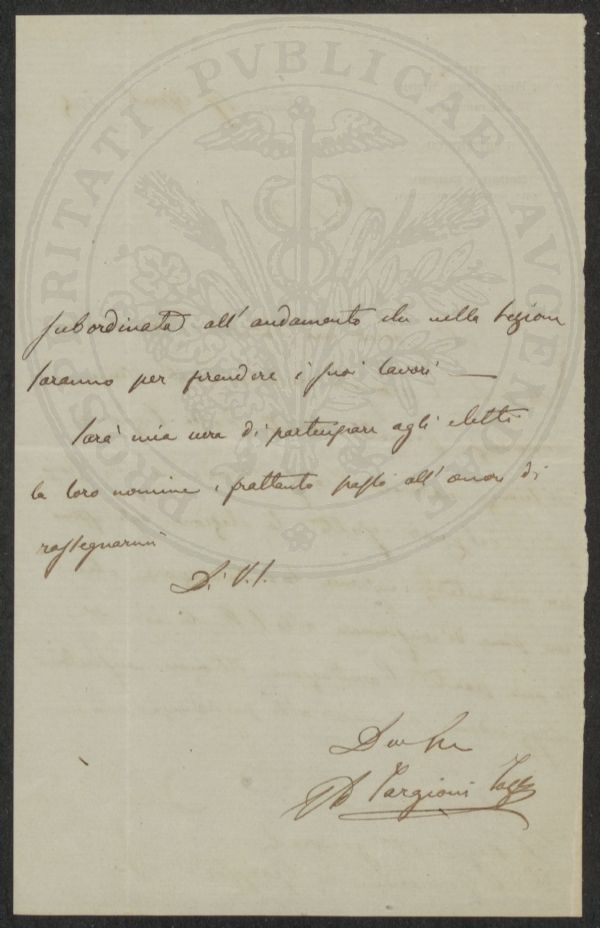 PROSPERITATI PVBLICAE AVGENDAE
subordinata all' andamento che nella Sezione
saranno per prendere i suoi lavori —
Sarà mia cura di partecipare agli eletti
la loro nomina, frattanto passo all' onore di
rassegnarmi
Di V. S.
Targioni Tozz